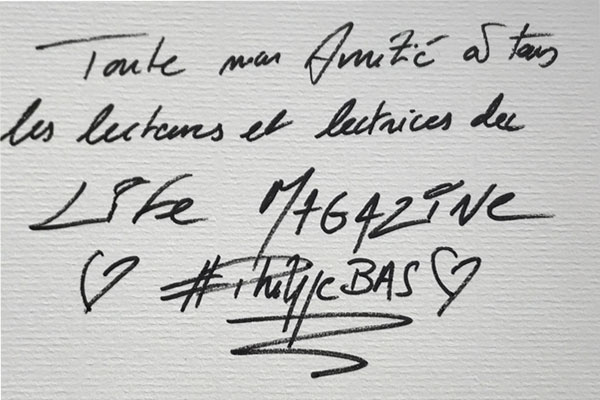 Toute mon Amitié à tous
les lecteurs et lectrices de
LiFe MAGAZINE
♡ #PhilippeBAS ♡